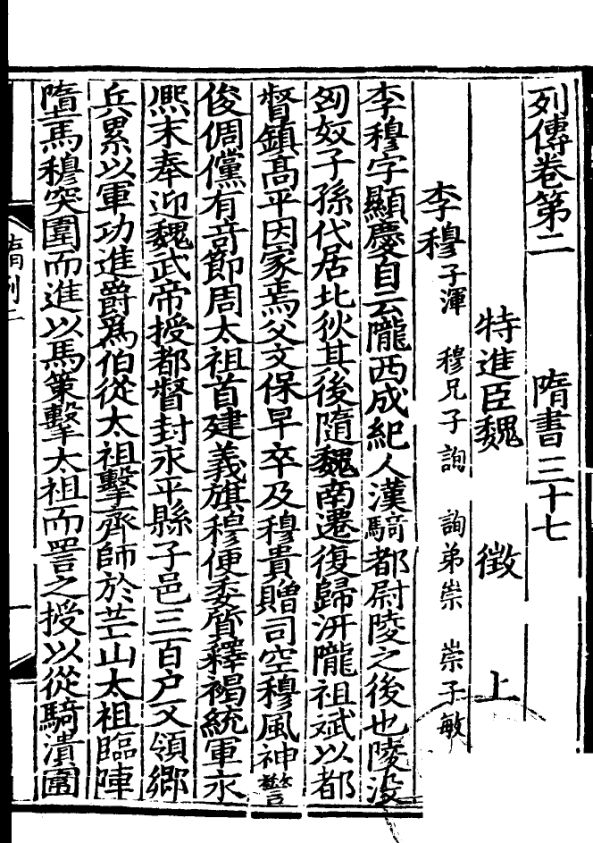 列傳卷第二　隋書三十七
特進臣魏　徵　上
李穆 子渾　穆兄子詢　詢弟崇　崇子敏
李穆字顯慶自云隴西成紀人漢騎都尉陵之後也陵没
匈奴子孫代居北狄其後隨魏南遷復歸汧隴祖斌以都
督鎮髙平因家焉父文保早卒及穆貴贈司空穆風神警
俊倜儻有竒節周太祖首建義旗穆便委質釋褐統軍永
熈末奉迎魏武帝授都督封永平縣子邑三百户又領鄉
兵累以軍功進爵爲伯從太祖擊齊師於芒山太祖臨陣
墮馬穆突圍而進以馬策擊太祖而詈之授以從騎潰圍
隋列二